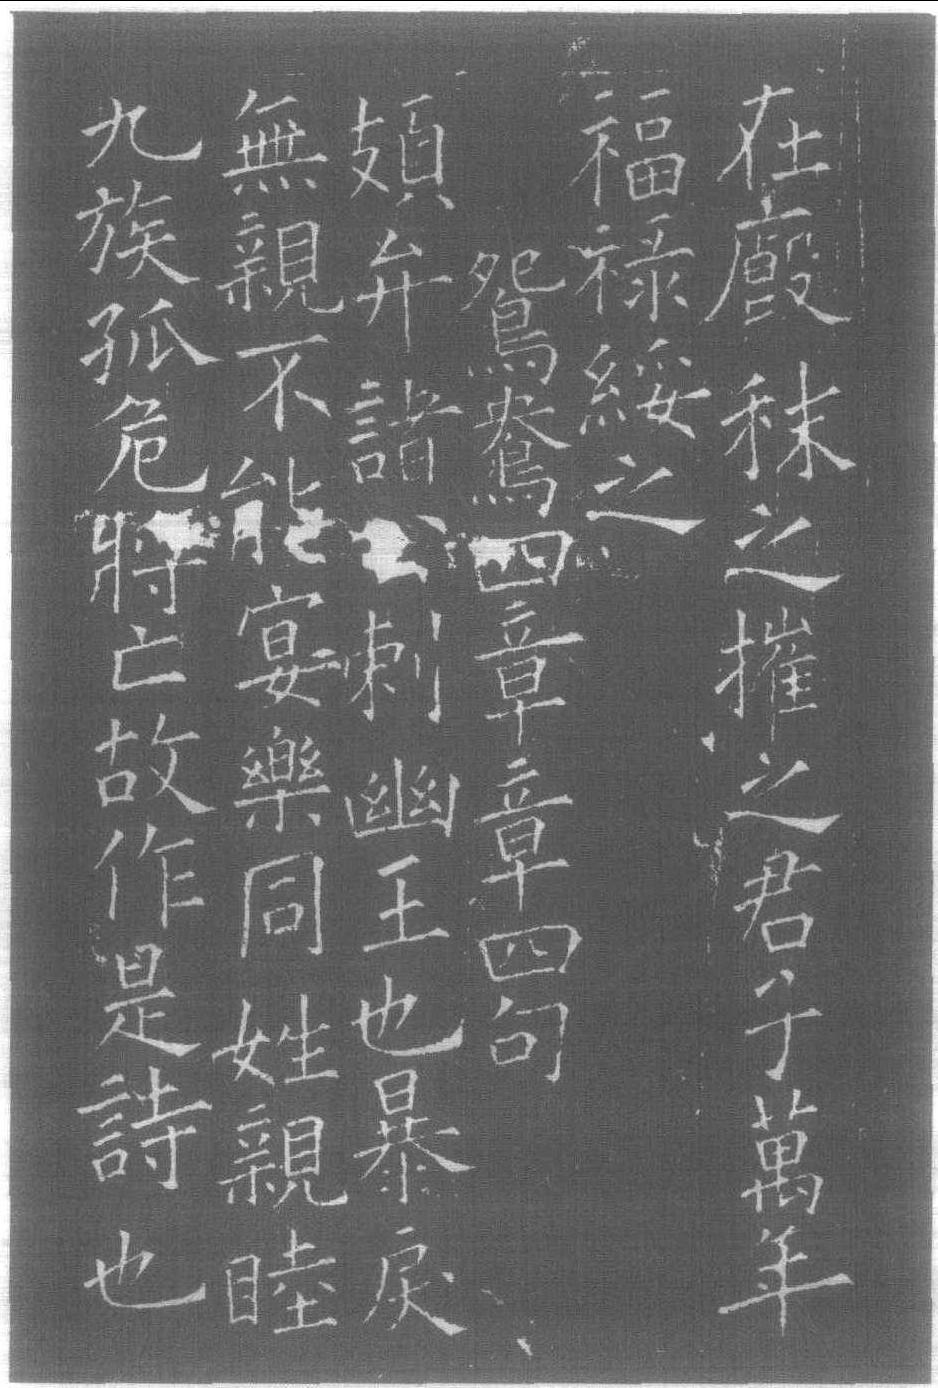 在廄秣之摧之君子萬年
福祿綏之
鴛鴦四章章四句
頍弁諸公刺幽王也暴戾
無親不能宴樂同姓親睦
九族孤危將亡故作是詩也